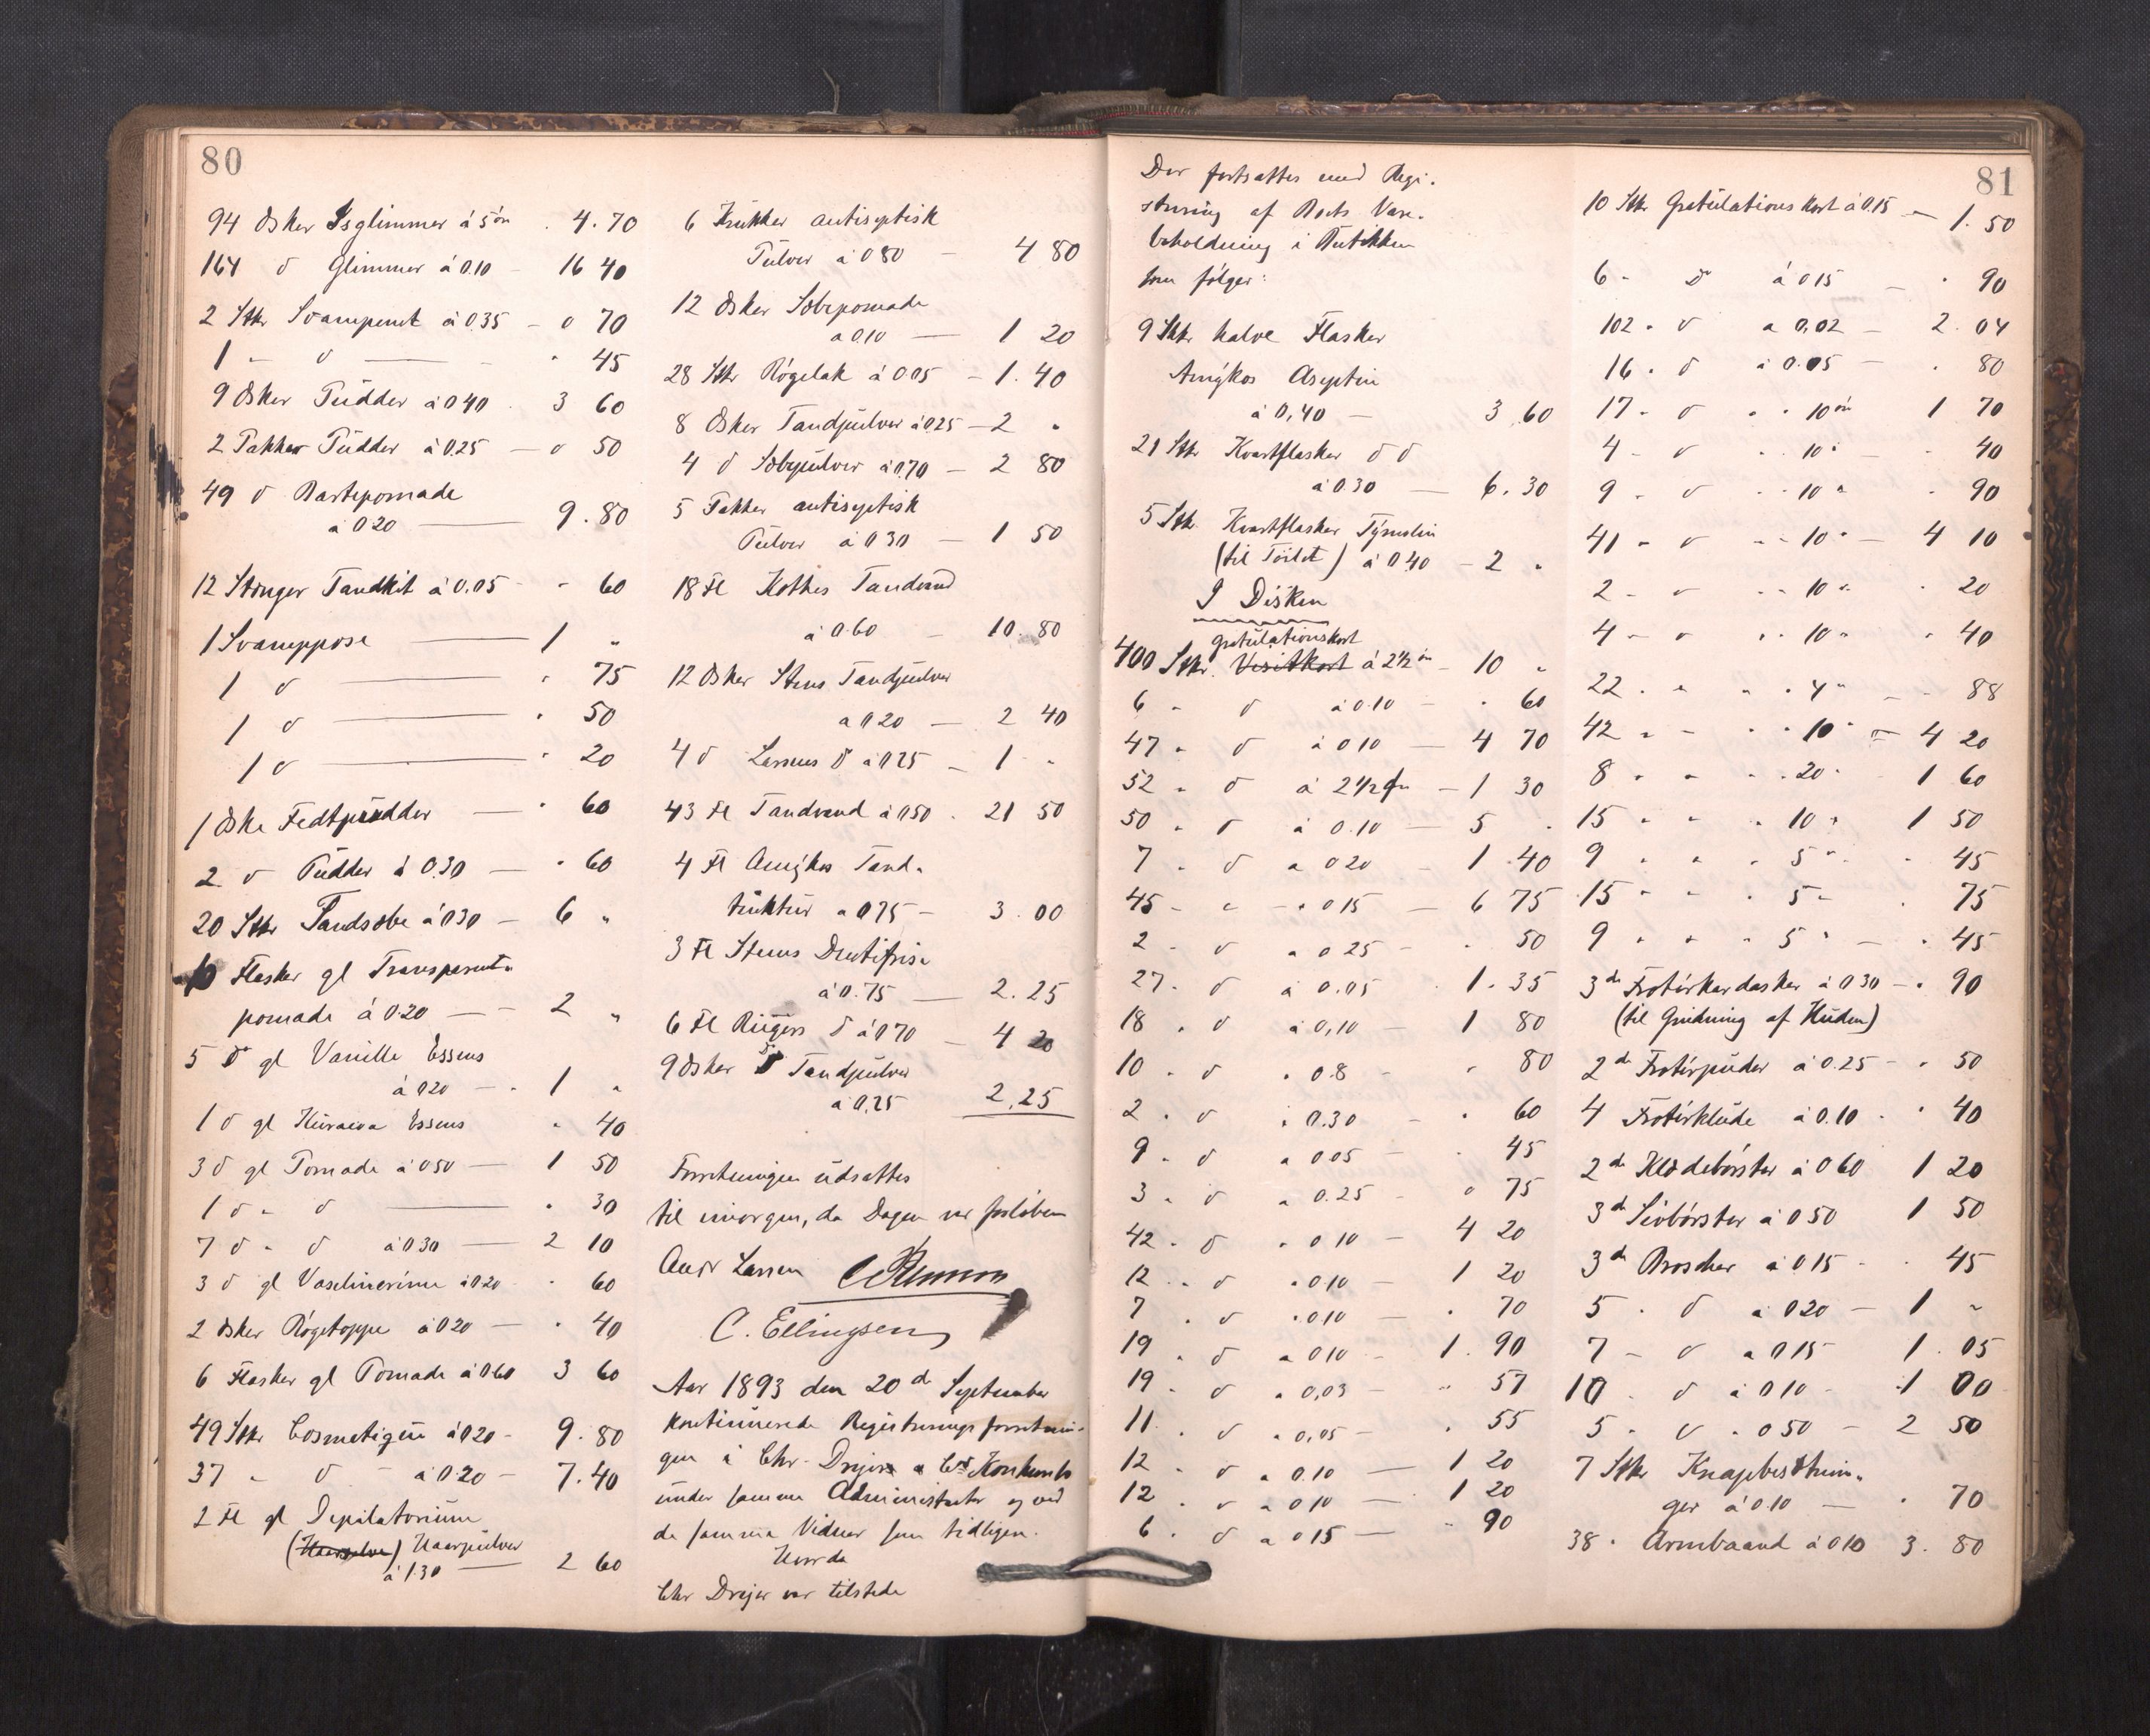 80
94 Æsker Isglimmer á 5 ør . 4.70
164 d Glimmer á 0.10 - 16 40
2 Stkr Svampenet á 0.35 - 0 70
1 - d — " 45
9 Æsker Pudder á 0 40 . 3 60
2 Pakker Pudder á 0.25 - 0 50
49 d Bartepomade
á 0 20 — 9.80
12 Stænger Tandkit á 0.05 - " 60
1 Svamppose — 1 "
1 d — " 75
1 d — " 50
1 d — " 20
1 Æske Fedtpudder — " 60
2 d Pudder á 0.30 — " 60
20 Stkr Tandsæbe á 0 30 - 6 "
10 Flasker gl Transparent-
pomade á 0.20 — 2 "
5 d gl Vanille Essens
á 0 20 — 1 "
1 d gl Essens " 40
3 d gl Pomade á 0 50 — 1 50
1 d " d — " 30
7 d " d á 0 30 — 2 10
3 d gl á 0.20 " 60
2 Æsker Røgetoppe á 0 20 — " 40
6 Flasker gl Pomade á 0 60 3 60
49 Stkr Cosmetique á 0 20 - 9.80
37 " d á 0.20 - 7.40
2 Fl gl Depilatorium
(Haarpulver) Haarpulver
á 1.30 — 2 60
6 Krukker antiseptisk
Pulver á 0 80 — 4 80
12 Æsker Sæbepomade
a 0.10 — 1 20
28 Stkr Røgelak á 0.05 - 1.40
8 Æsker Tandpulver á 0.25 - 2 "
4 d Sæbepulver á 0.70 - 2 80
5 Pakker antiseptisk
Pulver á 0 30 — 1 50
18 Fl Kothes Tandvand
á 0.60 — 10.80
12 Æsker Stens Tandpulver
a 0 20 — 2 40
4 d d á 0 25 — 1 "
43 Fl Tandvand á 0.50 . 21 50
4 Fl Amykos Tand-
tinktur á 0 75 — 3.00
3 Fl Stens Dentifrise
á 0.75 — 2.25
6 Fl d á 0 70 — 4 20
9 Æsker d Tandpulver
a 0,25 2,25
Forretningen udsattes
til imorgen, da Dagen var forløben
Andr Larsen
C. Ellingsen
Aar 1893 den 20d September
kontinuerede Registreringsforretnin-
gen i Chr. Drejer & Cos Konkursbo
under samme Administrator og med
de samme Vidner som tidligere.
Chr Drejer var tilstede
81
Der fortsattes med Regi-
strering af Boets Vare-
beholdning i Butikken
som følger:
9 Stkr halve Flasker
Amykos Aseptin
á 0,40 — 3,60
21 Stkr Kvartflasker d d
á 0.30 — 6.30
5 Stk. Kvartflasker
(til Toilet) á 0.40 - 2 "
I Disken
gratulationskort
400 Stkr. Visitkort á 2 1/2 ør - 10 "
6 " d á 0.10 - " 60
47 " d á 0 10 — 4 70
52 " d á 2 1/2 ør - 1 30
50 " d á 0.10 — 5 "
7 " d a 0 20 - 1 40
45 " " " 0 15 — 6 75
2 " d a 0 25 - " 50
27 " d á 0.05 " 1.35
18 " d á 0,10 — 1 80
10 " d " 0.8 - " 80
2 " d " 0.30 - " 60
9 " d a 0 05 - " 45
3 " d a 0.25 - 0 75
42 " d " 0 10 — 4 20
12 " d " 0 10 — 1 20
7 " d " 0 10 — " 70
19 " d a 0 10 — 1.90
19 " d a 0,03 - " 57
11 " d a 0,05 - " 55
12 " d a 0.10 — 1 20
12 " d a 0 10 — 1 20
6 " d a 0 15 — " 90
10 Stkr Gratulationskort á 0.15 — 1.50
6 " d á 0 15 — " 90
102 " d a 0,02 — 2.04
16 " d á 0.05 — " 80
17 " d " " 10 ør 1 70
4 " d " " 10 " — " 40
9 " d " " 10 " " 90
41 " d " " 10 " — 4 10
2 " d " " 10 " " 20
4 " d " " 10 " " 40
22 " " " " 4 " — " 88
42 " " " " 10 " — 4 20
8 " " " " 20 " 1 60
15 " " " " 10 " 1 50
9 " " " " 5 " " 45
15 " " " " 5 " " 75
9 " " " " 5 " — " 45
3 do á 0 30 — " 90
(til Gnidning af Huden)
2 do Frotérpuder á 0.25 - " 50
4 Frotérklude á 0.10 " " 40
2 do Klædebørster á 0 60 1 20
3 do á 0 50 1 50
3 do Broscher á 0 15 - " 45
5 " d á 0 20 — 1 "
7 " d a 0 15 1.05
10 " d á 0 10 - 1 00
5 " d " 0 50 — 2 50
7 Stkr
ger á 0.10 — " 70
38 " Armbaand á 0 10 3.80